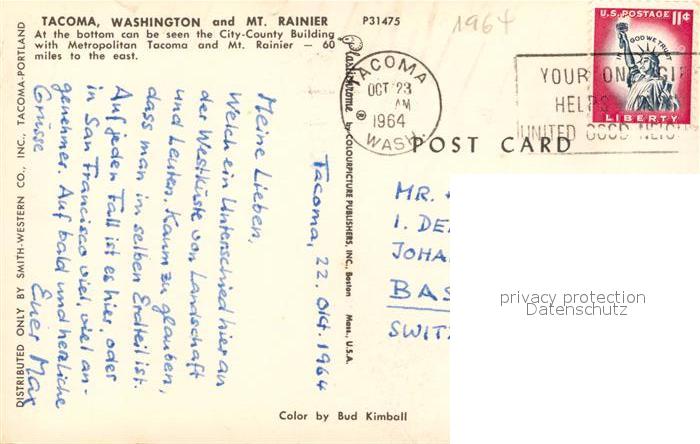 TACOMA, WASHINGTON and MT. RAINIER
At the bottom can be seen the City-County Building
with Metropolitan Tacoma and Mt. Rainier — 60
miles to the east.
P31475
1964
U.S. POSTAGE 11¢
IN GOD WE TRUST
LIBERTY
TACOMA
OCT 23
AM
1964
WASH.
YOUR ONE GIFT
HELPS
UNITED GOOD
POST CARD
DISTRIBUTED ONLY BY SMITH-WESTERN CO., INC., TACOMA-PORTLAND
Plastichrome ® by COLOURPICTURE PUBLISHERS, INC., Boston Mass., U.S.A.
Tacoma, 22. Okt. 1964
Meine Lieben,
Welch ein Unterschied hier an
der Westküste von Landschaft
und Leuten. Kaum zu glauben,
dass man im selben Erdteil ist.
Auf jeden Fall ist es hier oder
in San Francisco viel, viel an-
genehmer. Auf bald und herzliche
Grüsse Euer Max
MR.
1. DE
JOHA
BAS
SWITZ
privacy protection
Datenschutz
Color by Bud Kimball